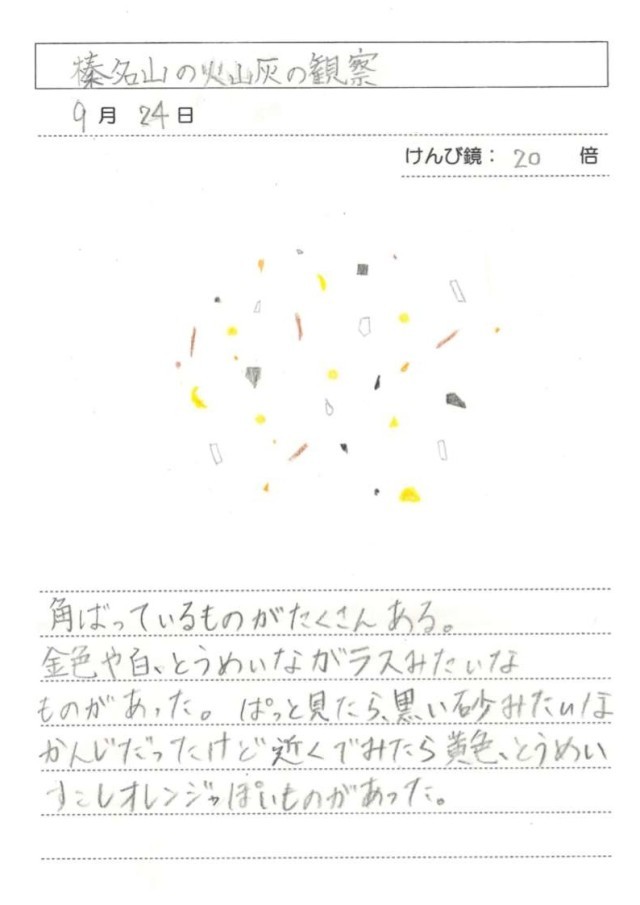 榛名山の火山灰の観察
9月 24日
けんび鏡： 20 倍
角ばっているものがたくさんある。
金色や白、とうめいなガラスみたいな
ものがあった。ぱっと見たら、黒い砂みたいな
かんじだったけど近くでみたら黄色、とうめい
すこしオレンジっぽいものがあった。